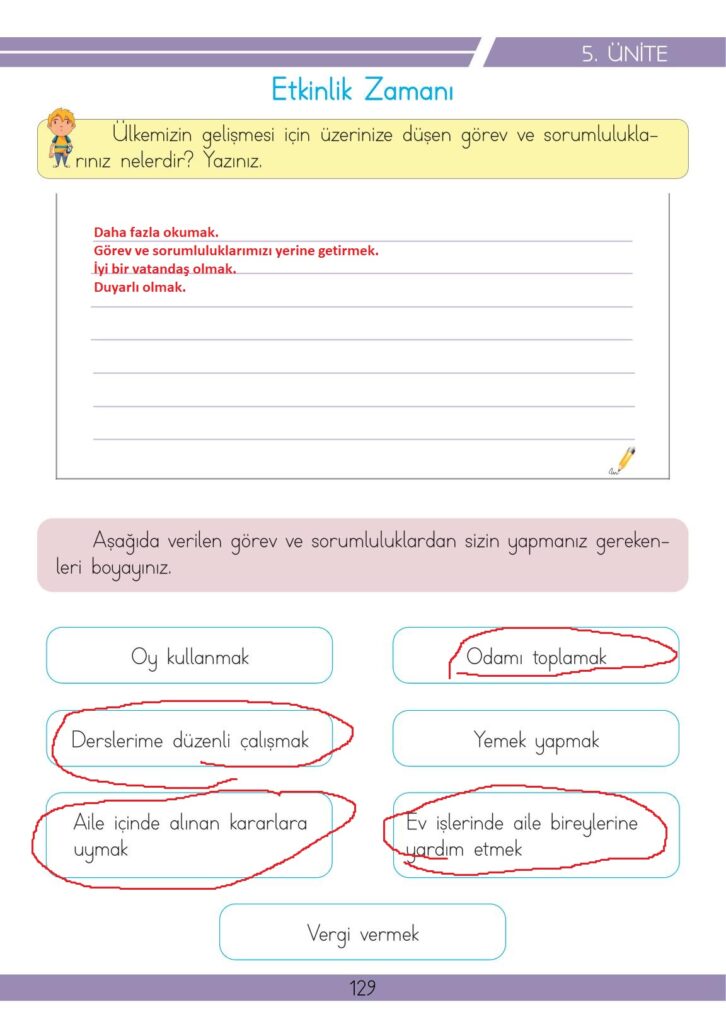 5. ÜNİTE
Etkinlik Zamanı
Ülkemizin gelişmesi için üzerinize düşen görev ve sorumlulukla-
rınız nelerdir? Yazınız.
Daha fazla okumak.
Görev ve sorumluluklarımızı yerine getirmek.
İyi bir vatandaş olmak.
Duyarlı olmak.
Aşağıda verilen görev ve sorumluluklardan sizin yapmanız gereken-
leri boyayınız.
Oy kullanmak
Odamı toplamak
Derslerime düzenli çalışmak
Yemek yapmak
Aile içinde alınan kararlara
uymak
Ev işlerinde aile bireylerine
yardım etmek
Vergi vermek
129